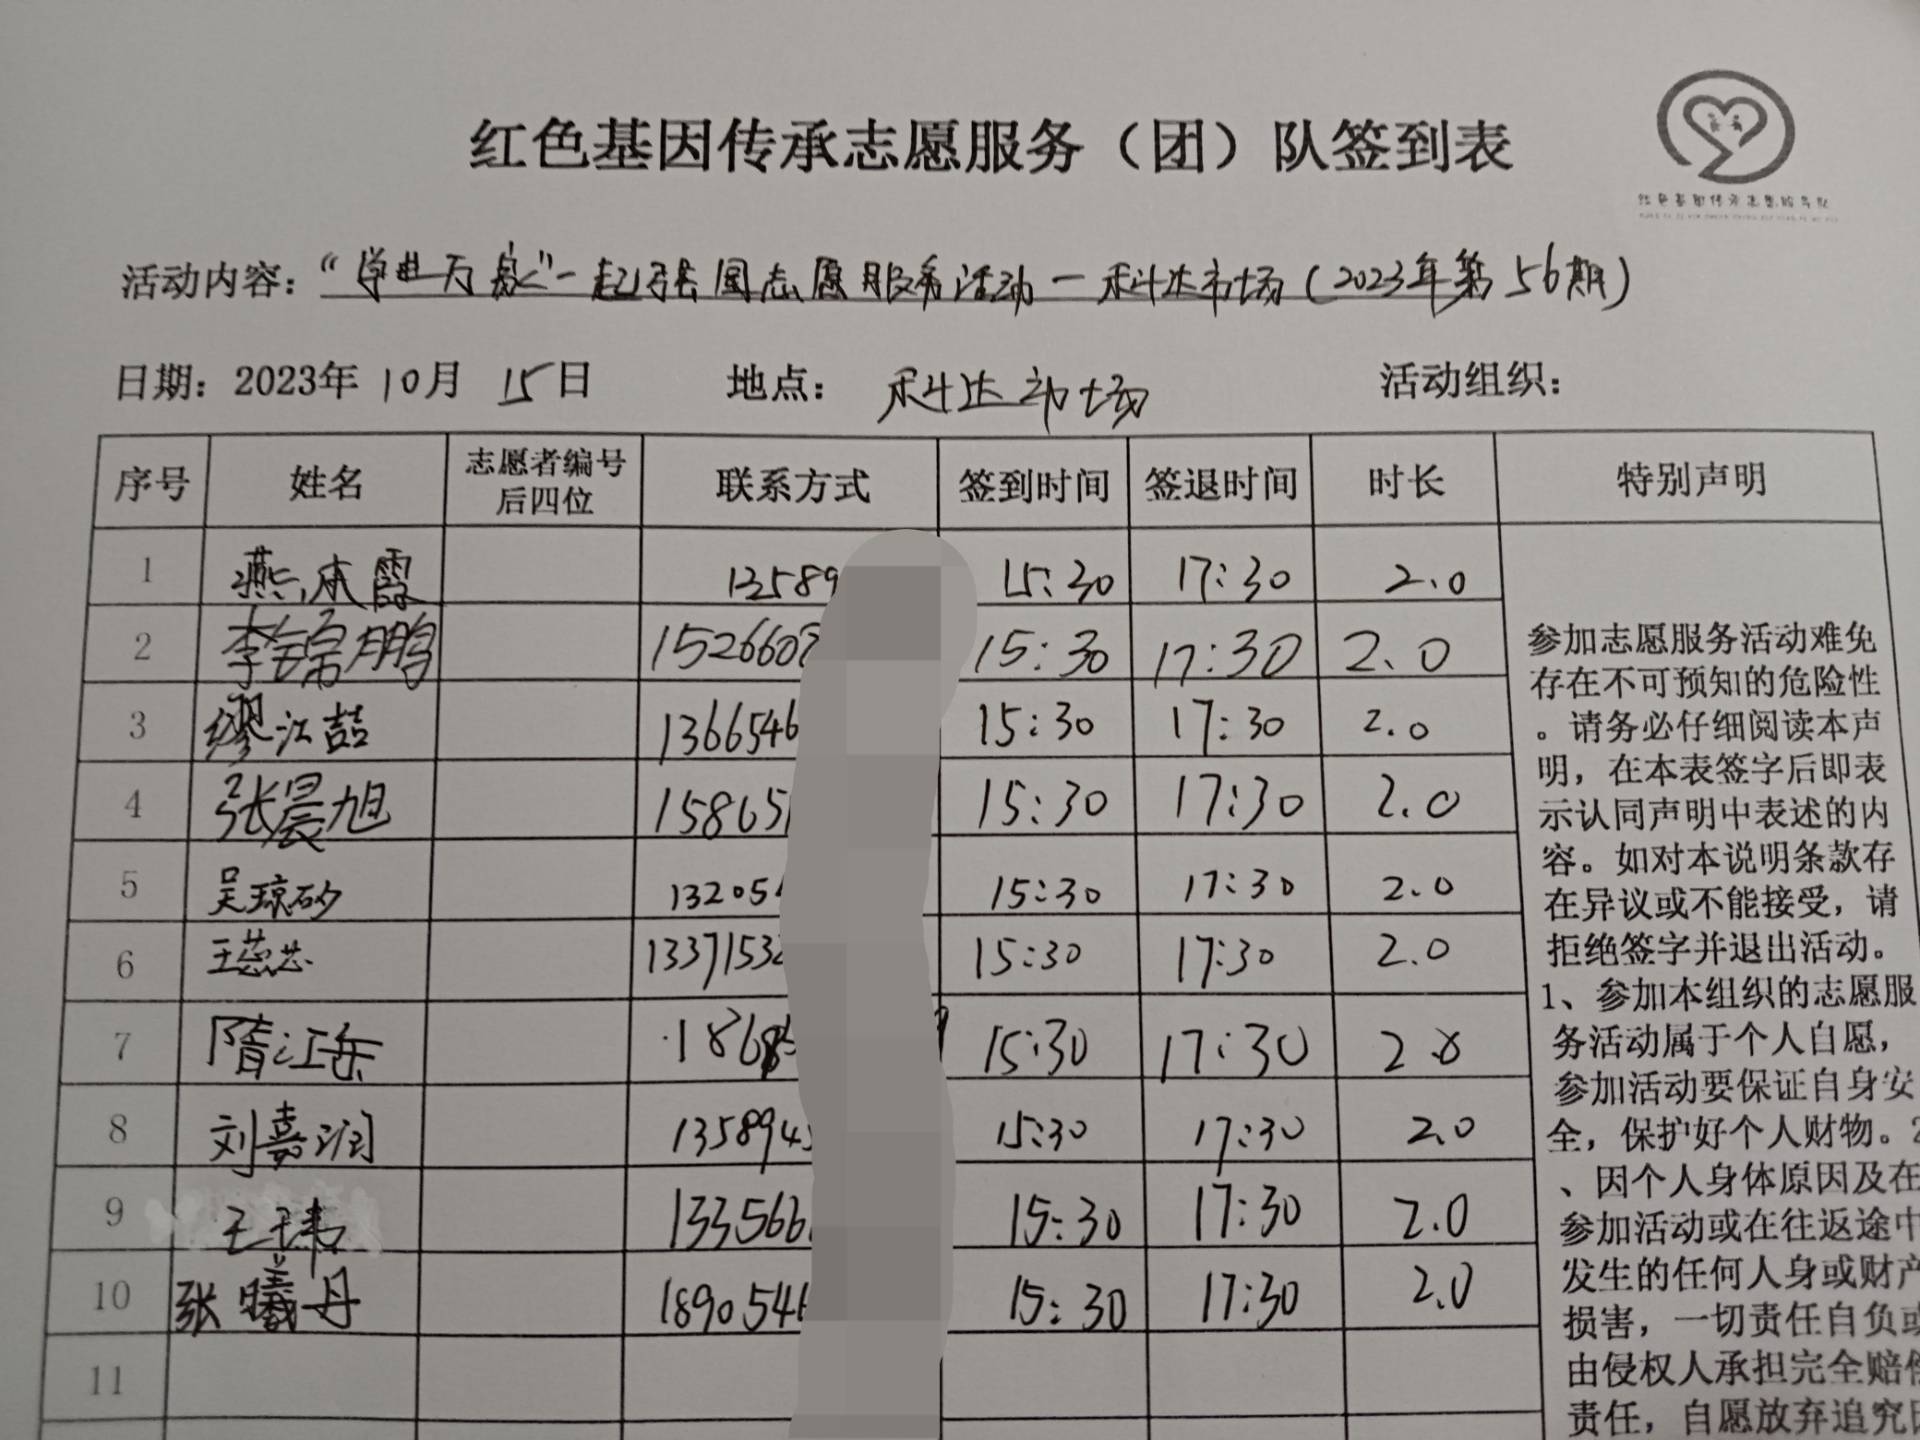 红色基因传承志愿服务（团）队签到表
红色基因传承志愿服务队
活动内容：“学典万家”一起强国志愿服务活动—科达市场(2023年第56期)
日期：2023年10月15日 地点：科达市场 活动组织：
序号 姓名 志愿者编号后四位 联系方式 签到时间 签退时间 时长 特别声明
1 燕本霞 13589 15:30 17:30 2.0
2 李锦鹏 1526608 15:30 17:30 2.0
3 缪江喆 1366546 15:30 17:30 2.0
4 张晨旭 158651 15:30 17:30 2.0
5 吴琼矽 132054 15:30 17:30 2.0
6 王蕊芯 13371532 15:30 17:30 2.0
7 隋江岳 1868 9 15:30 17:30 2.0
8 刘嘉润 1358945 15:30 17:30 2.0
9 王玮 133566 15:30 17:30 2.0
10 张曦丹 18905546 15:30 17:30 2.0
11
参加志愿服务活动难免
存在不可预知的危险性
。请务必仔细阅读本声
明，在本表签字后即表
示认同声明中表述的内
容。如对本说明条款存
在异议或不能接受，请
拒绝签字并退出活动。
1、参加本组织的志愿服
务活动属于个人自愿，
参加活动要保证自身安
全，保护好个人财物。2
、因个人身体原因及在
参加活动或在往返途中
发生的任何人身或财产
损害，一切责任自负或
由侵权人承担完全赔偿
责任，自愿放弃追究因